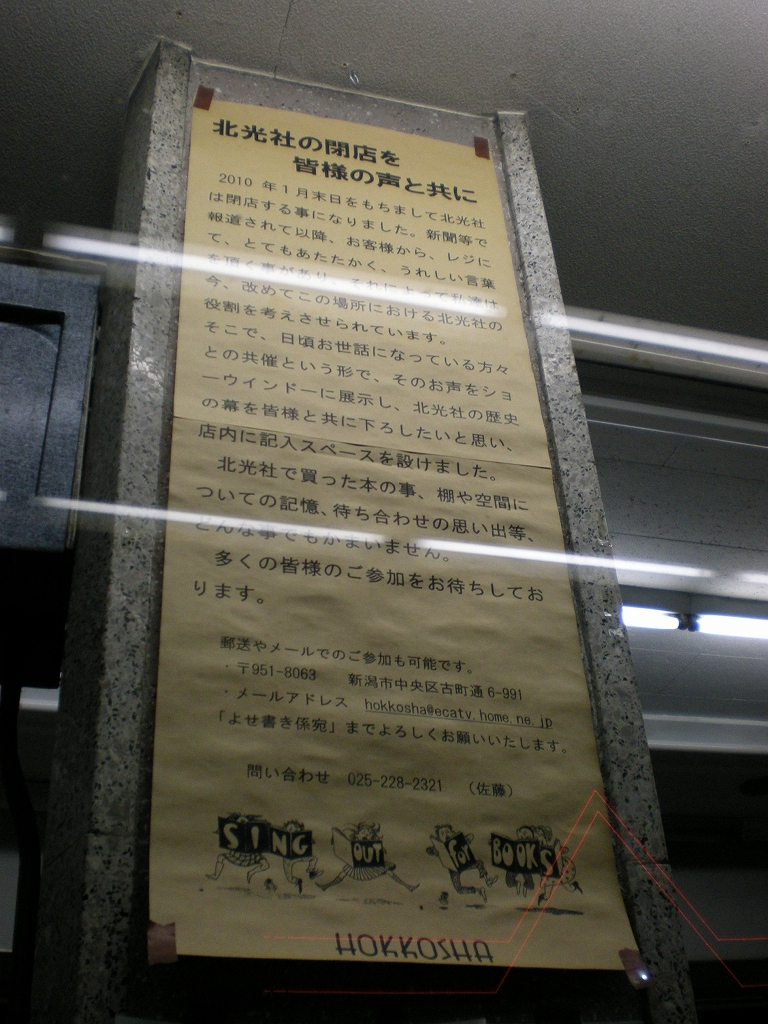 北光社の閉店を
皆様の声と共に
2010 年1月末日をもちまして北光社
は閉店する事になりました。新聞等で
報道されて以降、お客様から、レジに
て、とてもあたたかく、うれしい言葉
を頂く事があり、それによって私達は
今、改めてこの場所における北光社の
役割を考えさせられています。
そこで、日頃お世話になっている方々
との共催という形で、そのお声をショ
ーウインドーに展示し、北光社の歴史
の幕を皆様と共に下ろしたいと思い、
店内に記入スペースを設けました。
北光社で買った本の事、棚や空間に
ついての記憶、待ち合わせの思い出等、
どんな事でもかまいません。
多くの皆様のご参加をお待ちしてお
ります。
郵送やメールでのご参加も可能です。
・〒951-8063 新潟市中央区古町通 6-991
・メールアドレス hokkosha@ecatv.home.ne.jp
「よせ書き係宛」までよろしくお願いいたします。
問い合わせ 025-228-2321 (佐藤)
SING OUT FOR BOOKS
HOKKOSHA